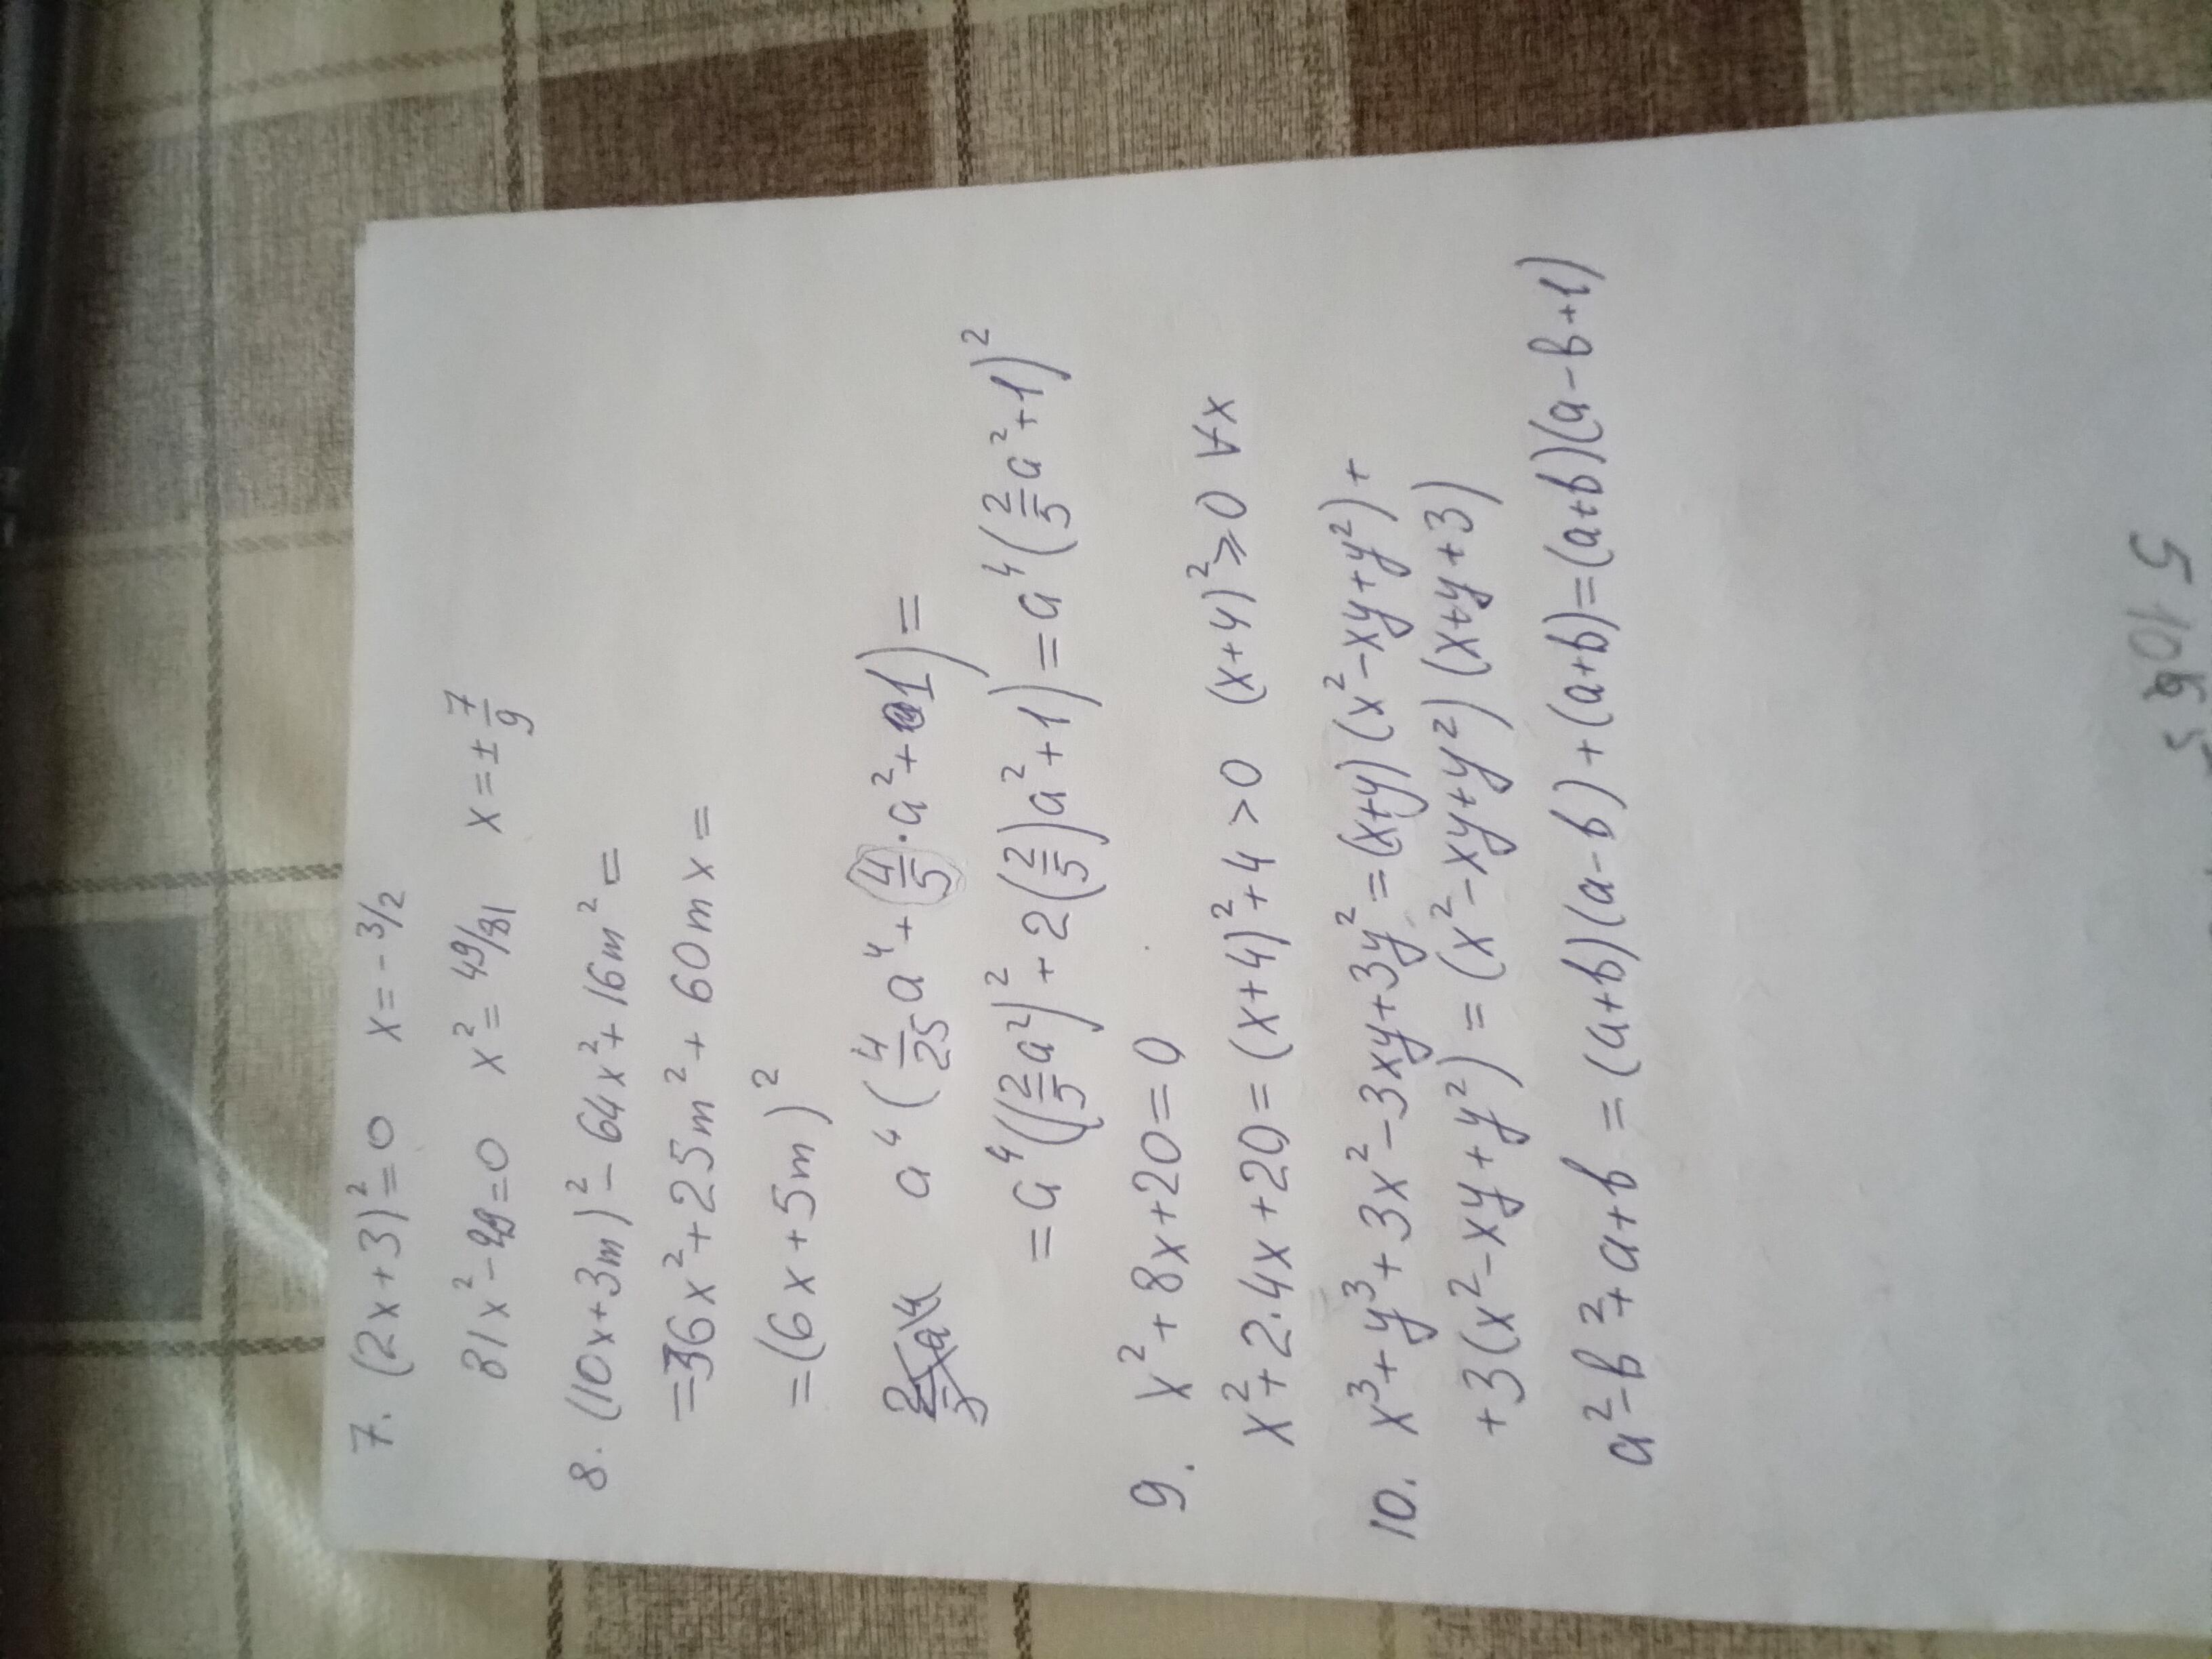 7. (2x+3)²=0 x=-3/2
81x²-49=0 x²=49/81 x=±7/9
8. (10x+3m)²-64x²+16m²=
=36x²+25m²+60mx=
=(6x+5m)²
a⁴(4/25a⁴+(4/5)·a²+1)=
=a⁴((2/5a²)²+2(2/5)a²+1)=a⁴(2/5a²+1)²
9. x²+8x+20=0
x²+2·4x+20=(x+4)²+4>0 (x+4)²⩾0 ∀x
10. x³+y³+3x²-3xy+3y²=(x+y)(x²-xy+y²)+
+3(x²-xy+y²)=(x²-xy+y²)(x+y+3)
a²-b²+a+b=(a+b)(a-b)+(a+b)=(a+b)(a-b+1)